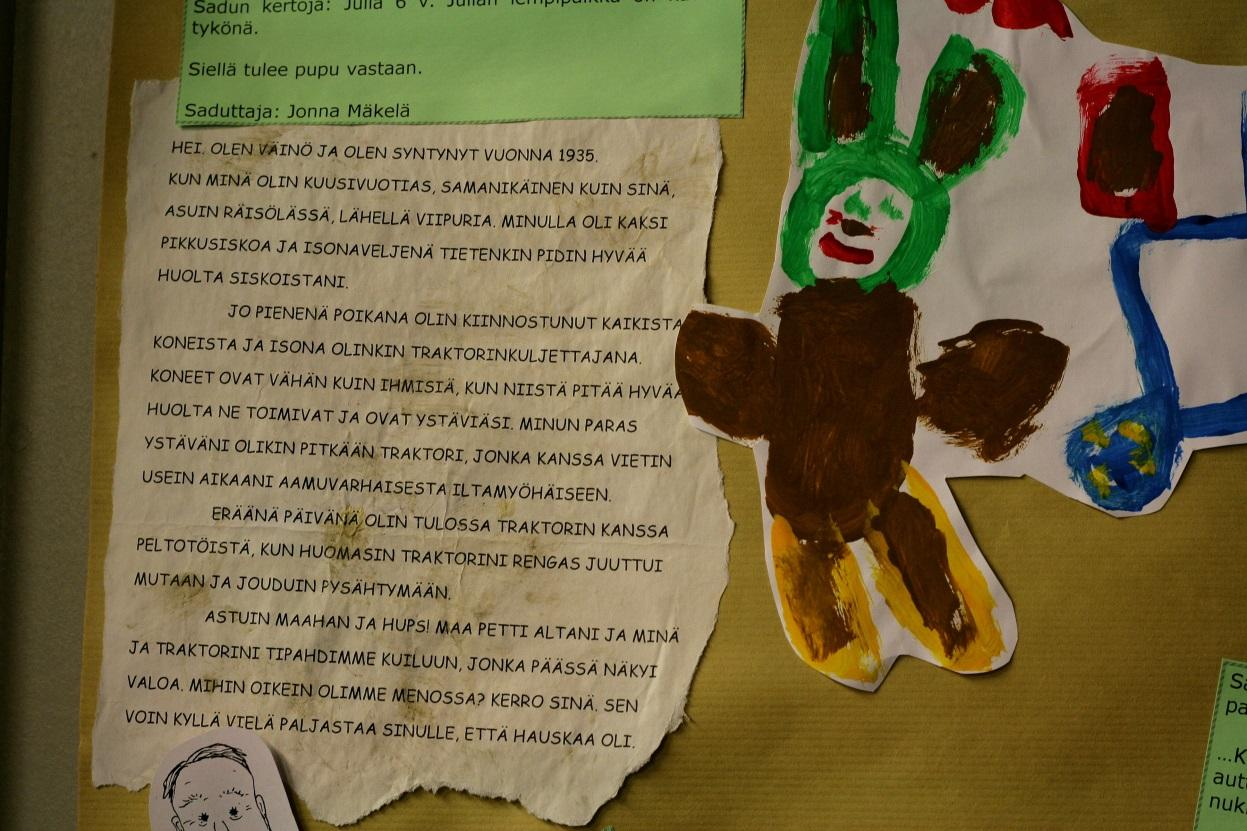 Sadun kertoja: Julia 6 v. Julian lempipaikka on
tykönä.
Siellä tulee pupu vastaan.
Saduttaja: Jonna Mäkelä
HEI. OLEN VÄINÖ JA OLEN SYNTYNYT VUONNA 1935.
KUN MINÄ OLIN KUUSIVUOTIAS, SAMANIKÄINEN KUIN SINÄ,
ASUIN RÄISÖLÄSSÄ, LÄHELLÄ VIIPURIA. MINULLA OLI KAKSI
PIKKUSISKOA JA ISONAVELJENÄ TIETENKIN PIDIN HYVÄÄ
HUOLTA SISKOISTANI.
JO PIENENÄ POIKANA OLIN KIINNOSTUNUT KAIKISTA
KONEISTA JA ISONA OLINKIN TRAKTORINKULJETTAJANA.
KONEET OVAT VÄHÄN KUIN IHMISIÄ, KUN NIISTÄ PITÄÄ HYVÄÄ
HUOLTA NE TOIMIVAT JA OVAT YSTÄVIÄSI. MINUN PARAS
YSTÄVÄNI OLIKIN PITKÄÄN TRAKTORI, JONKA KANSSA VIETIN
USEIN AIKAANI AAMUVARHAISESTA ILTAMYÖHÄISEEN.
ERÄÄNÄ PÄIVÄNÄ OLIN TULOSSA TRAKTORIN KANSSA
PELTOTÖISTÄ, KUN HUOMASIN TRAKTORINI RENGAS JUUTTUI
MUTAAN JA JOUDUIN PYSÄHTYMÄÄN.
ASTUIN MAAHAN JA HUPS! MAA PETTI ALTANI JA MINÄ
JA TRAKTORINI TIPAHDIMME KUILUUN, JONKA PÄÄSSÄ NÄKYI
VALOA. MIHIN OIKEIN OLIMME MENOSSA? KERRO SINÄ. SEN
VOIN KYLLÄ VIELÄ PALJASTAA SINULLE, ETTÄ HAUSKAA OLI.